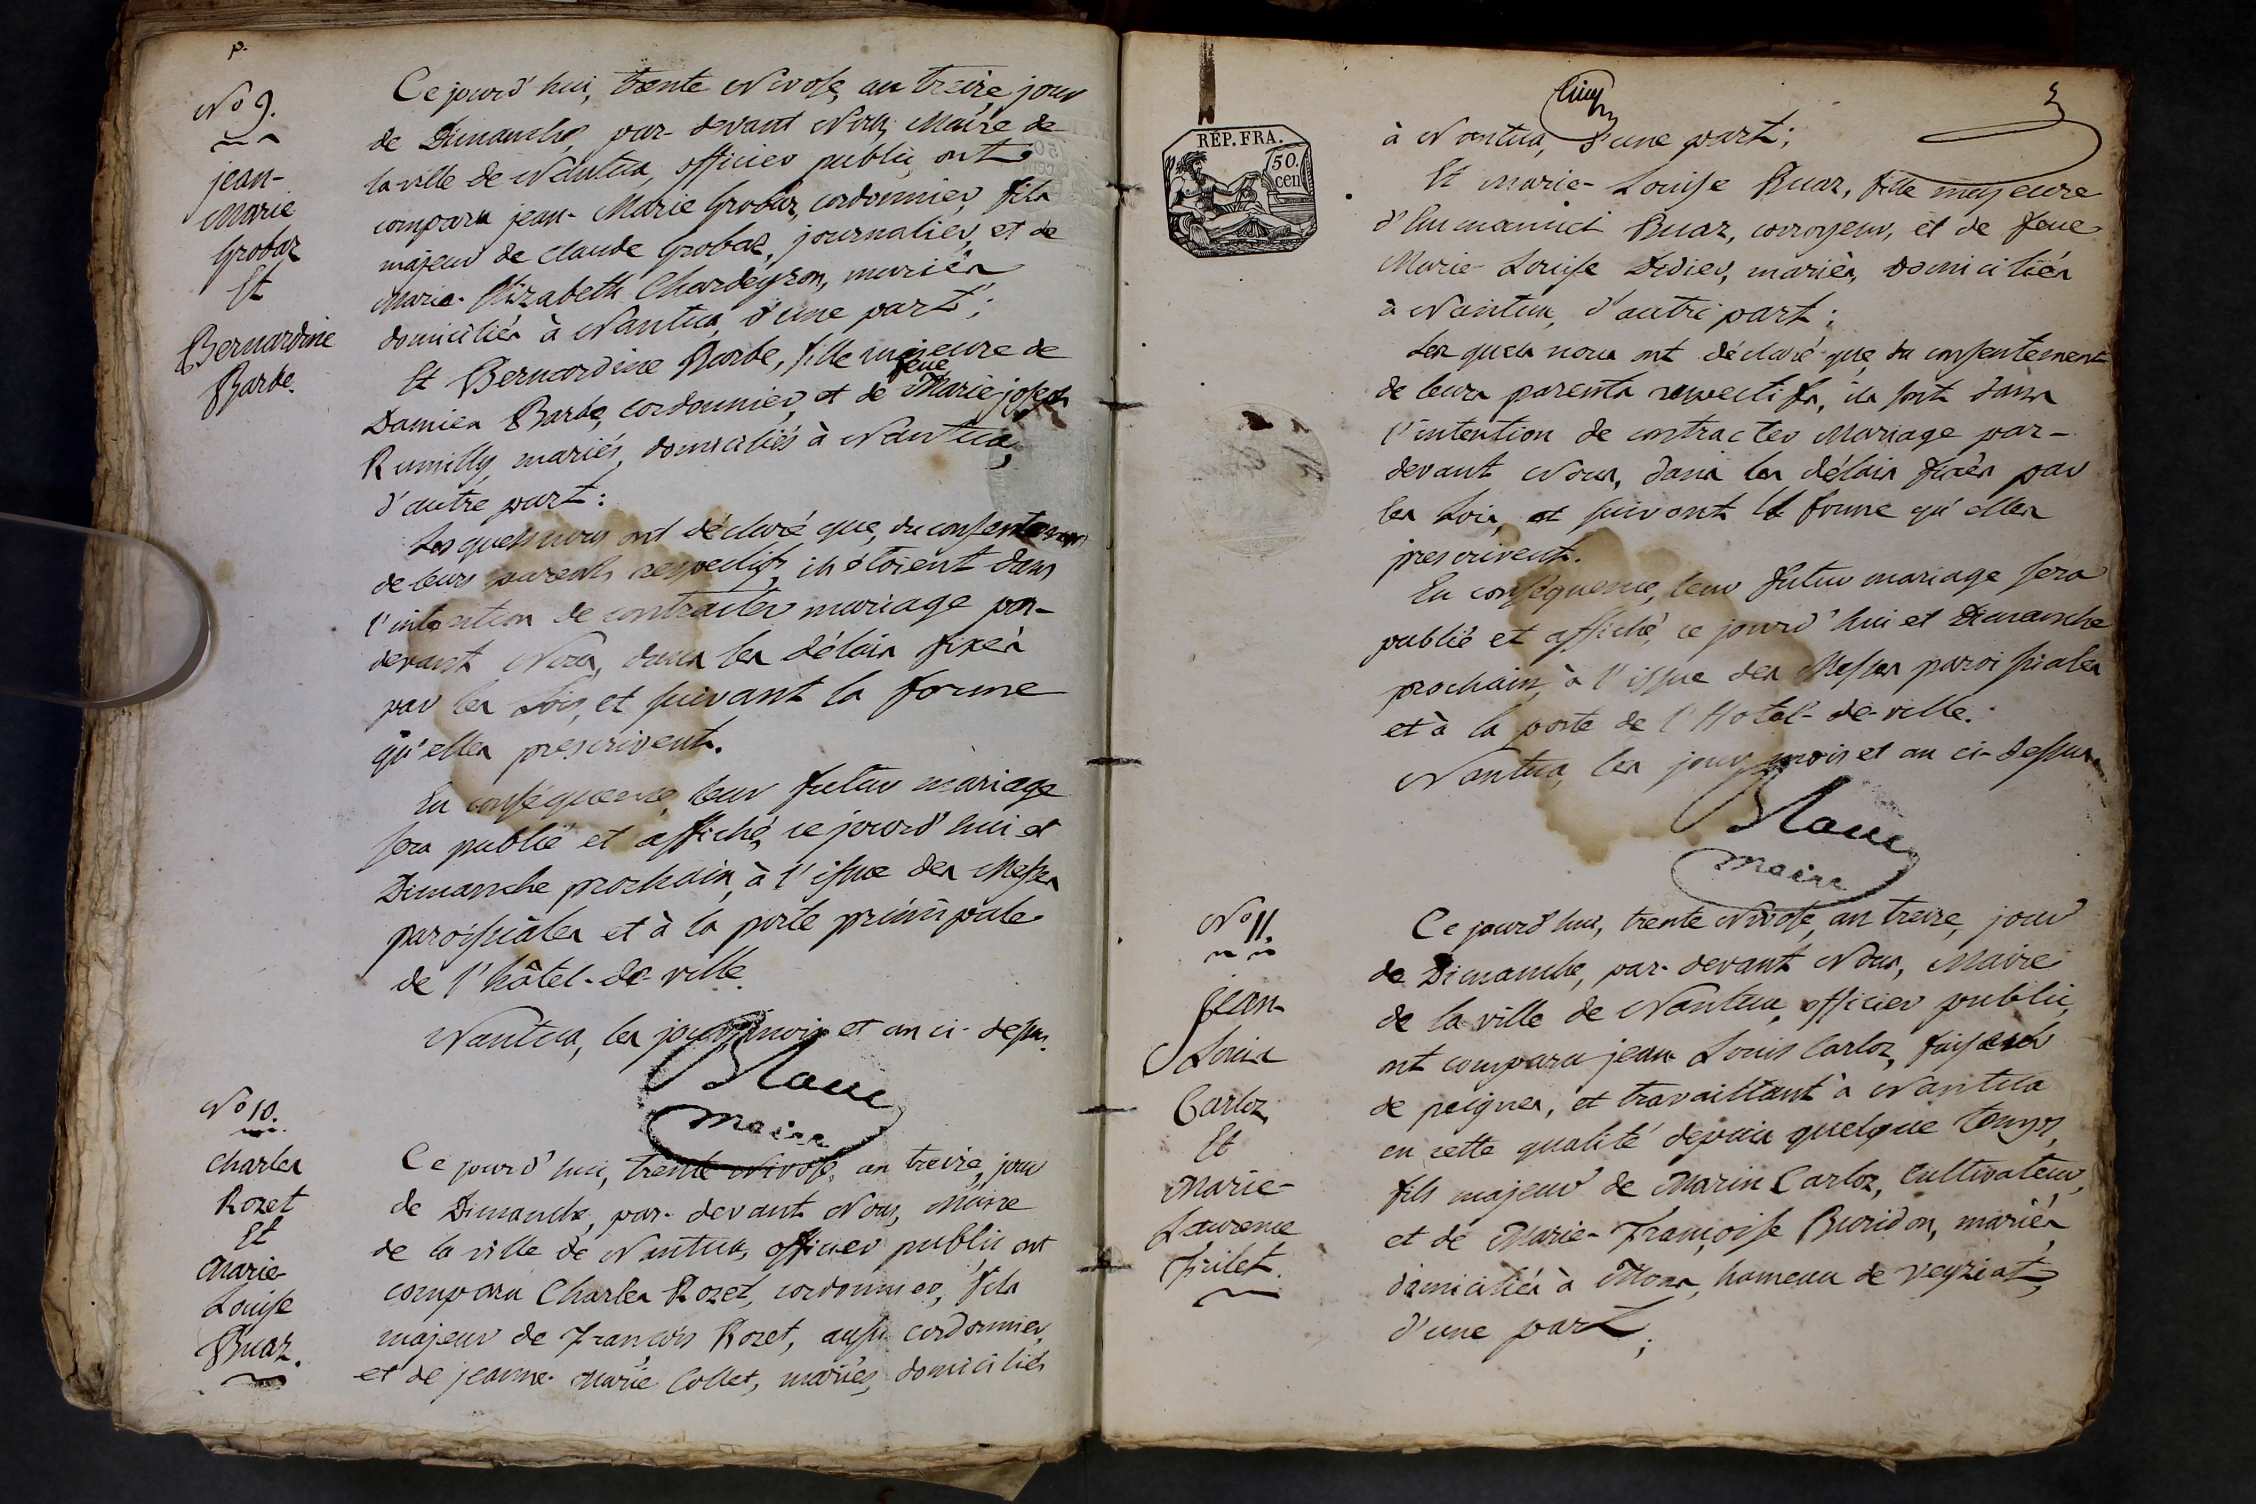 p.
No 9.
jean-
Marie
Grobaz
Et
Bernardine
Barbe.
Ce jourd'hui, trente Nivose, an treize, jour
de Dimanche, par-devant Nous, Maire de
la ville de Nantua, officier public, ont
comparu jean-Marie Grobaz, cordonnier, fils
majeur de claude Grobaz, journalier, et de
Marie-Elizabeth Chardeyron, mariés,
domiciliés à Nantua, d'une part;
Et Bernardine Barbe, fille mineure de
Damien Barbe, cordonnier, et de feue Marie joseph
Rumilly, mariés, domiciliés à Nantua,
d'autre part:
Les quels nous ont déclaré que, du consentement
de leurs parents respectifs, ils étoient dans
l'intention de contracter mariage par-
devant Nous, dans les délais fixés
par les Lois, et suivant la forme
qu'elles prescrivent.
En conséquence, leur futur mariage
sera publié et affiché, ce jourd'hui et
Dimanche prochain, à l'issue des Messes
paroissiales et à la porte principale
de l'hôtel-de-ville.
Nantua, les jour, mois et an ci-dessus.
Blanc
maire
No 10.
Charles
Rozet
Et
Marie-
Louise
Buaz.
Ce jourd'hui, trente Nivose, an treize, jour
de Dimanche, par-devant Nous, Maire
de la ville de Nantua, officier public ont
comparu Charles Rozet, cordonnier, fils
majeur de François Rozet, aussi cordonnier,
et de jeanne-Marie Collet, mariés, domiciliés
REP. FRA.
50.
cen
Cinq
5
à Nantua, d'une part;
Et Marie-Louise Buaz, fille majeure
d'Emmanuel Buaz, corroyeur, et de feue
Marie-Louise Didier, mariés, domiciliés
à Nantua, d'autre part;
Les quels nous ont déclaré que, du consentement
de leurs parents respectifs, ils sont dans
l'intention de contracter Mariage par-
devant Nous, dans les délais fixés par
les Lois, et suivant la forme qu'elles
prescrivent.
En conséquence, leur futur mariage sera
publié et affiché, ce jourd'hui et Dimanche
prochain, à l'issue des Messes paroissiales
et à la porte de l'Hotel-de-ville.
Nantua, les jour, mois et an ci-dessus.
Blanc
maire
No 11.
Jean-
Louis
Carloz
Et
Marie-
Laurence
Frilet.
Ce jourd'hui, trente Nivose, an treize, jour
de Dimanche, par-devant Nous, Maire
de la ville de Nantua, officier public,
ont comparu jean Louis Carloz, faiseur
de peignes, et travaillant à Nantua
en cette qualité depuis quelque temps,
fils majeur de Marin Carloz, Cultivateur,
et de Marie-Françoise Buridon, mariés,
domiciliés à Mons, hameau de veyziat,
d'une part;